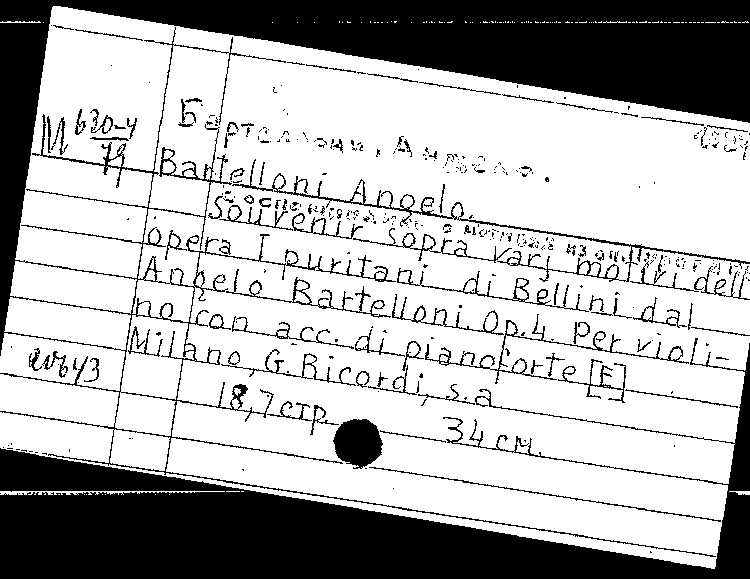 М 630-4
79
Бартеллони, Анджело.
Bartelloni Angelo.
Souvenir sopra varj motivi dell
opera I puritani di Bellini dal
Angelo Bartelloni. Op.4. Per violi-
no con acc. di pianoforte [E]
Milano, G. Ricordi, s.a
18,7 стр 34 см.